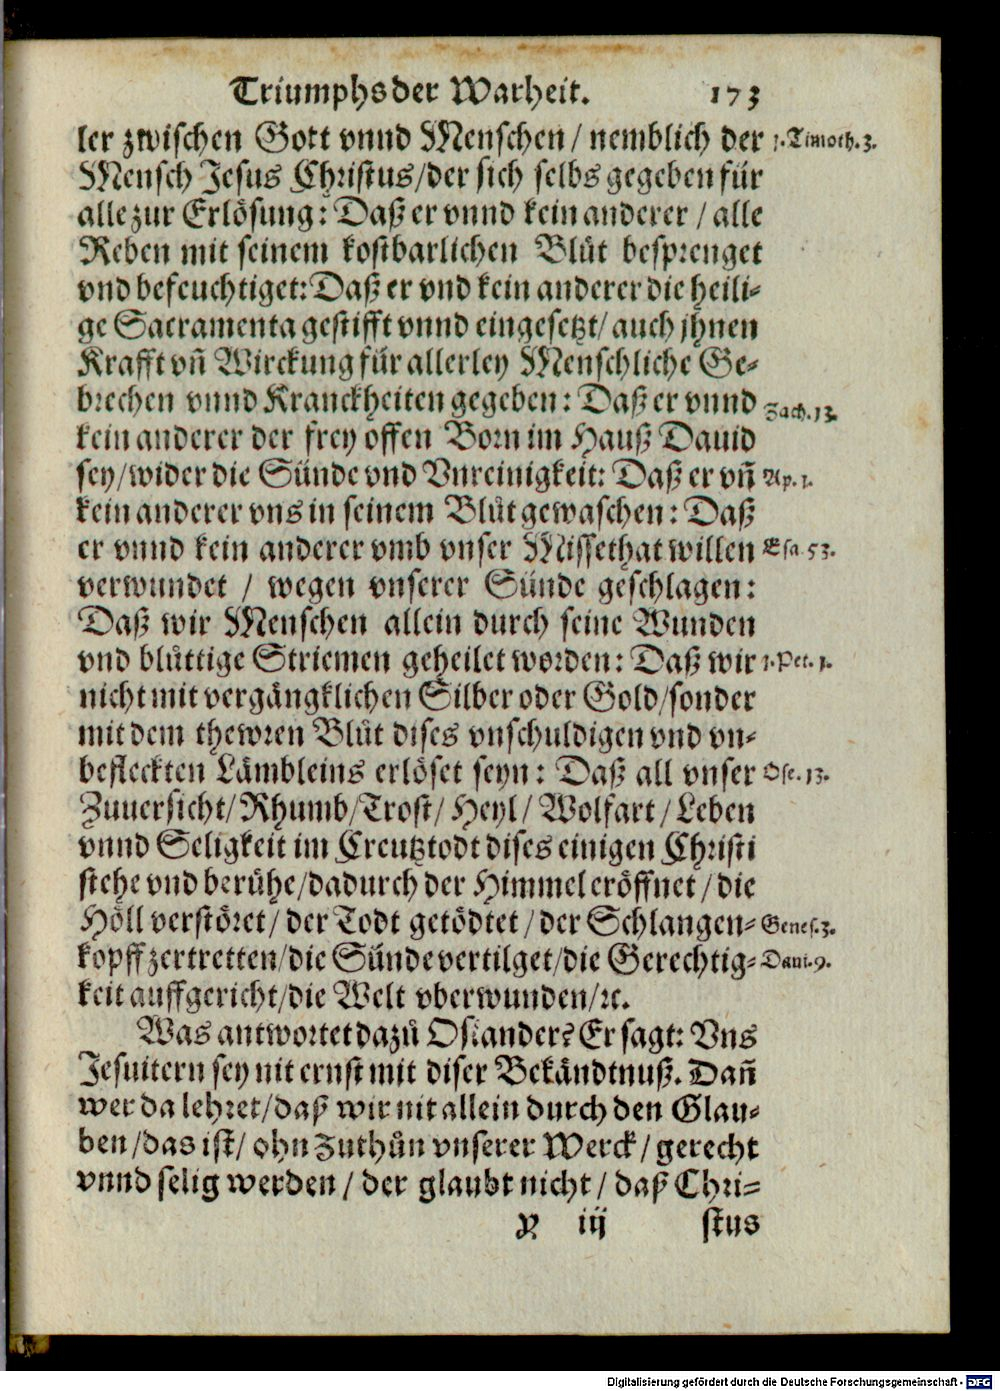 Triumphs der Warheit. 173
ler zwischen Gott vnnd Menschen / nemblich der 1. Timoth. 3.
Mensch Jesus Christus/der sich selbs gegeben für
alle zur Erlösung: Daß er vnnd kein anderer / alle
Reben mit seinem kostbarlichen Blůt besprenget
vnd befeuchtiget: Daß er vnd kein anderer die heili-
ge Sacramenta gestifft vnnd eingesetzt/ auch jhnen
Krafft vñ Wirckung für allerley Menschliche Ge-
brechen vnnd Kranckheiten gegeben: Daß er vnnd Zach. 13.
kein anderer der frey offen Born im Hauß Dauid
sey/wider die Sünde vnd Vnreinigkeit: Daß er vñ Ap. 1.
kein anderer vns in seinem Blůt gewaschen: Daß
er vnnd kein anderer vmb vnser Missethat willen Esa. 53.
verwundet / wegen vnserer Sünde geschlagen:
Daß wir Menschen allein durch seine Wunden
vnd blůttige Striemen geheilet worden: Daß wir 1. Pet. 1.
nicht mit vergängklichen Silber oder Gold/sonder
mit dem thewren Blůt dises vnschuldigen vnd vn-
befleckten Lämbleins erlöset seyn: Daß all vnser Ose. 13.
Zuuersicht/ Rhumb/ Trost/ Heyl/ Wolfart / Leben
vnnd Seligkeit im Creutztodt dises einigen Christi
stehe vnd berůhe/dadurch der Himmel eröffnet / die
Höll verstöret/ der Todt getödtet / der Schlangen- Genes. 3.
kopff zertretten/die Sünde vertilget/die Gerechtig- Dani. 9.
keit auffgericht/die Welt vberwunden/ꝛc.
Was antwortet dazů Osiander? Er sagt: Vns
Jesuitern sey nit ernst mit diser Bekändtnuß. Dañ
wer da lehret/daß wir nit allein durch den Glau-
ben /das ist/ ohn Zuthůn vnserer Werck / gerecht
vnnd selig werden / der glaubt nicht / daß Chri-
iij stus
Digitalisierung gefördert durch die Deutsche Forschungsgemeinschaft - DFG